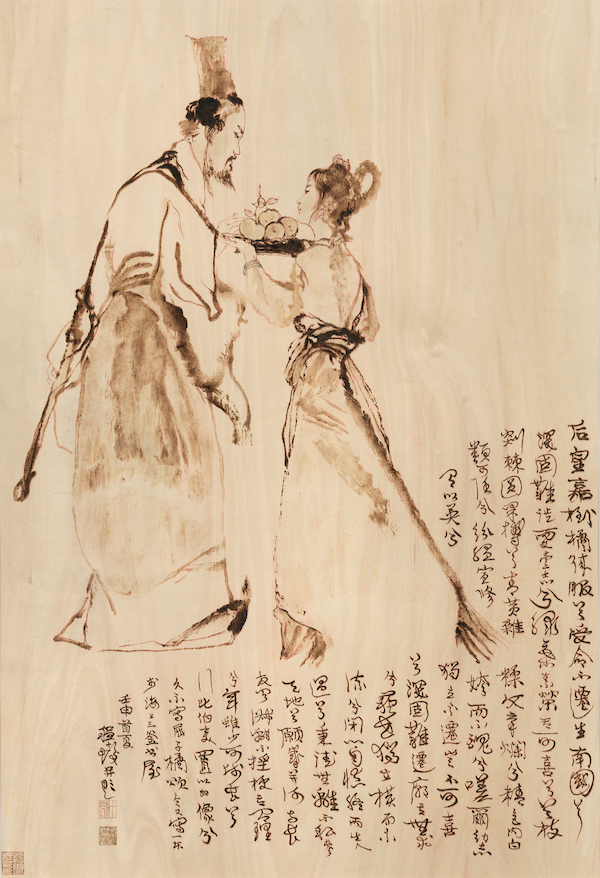 后皇嘉樹橘徕服兮受命不遷生南國兮
深固難徙更壹志兮綠葉素榮其可喜兮曾枝
剡棘圓果摶兮青黃雜
糅文章爛兮精色內白
類可任兮紛緼宜修
姱而不醜兮嗟爾幼志
有以異兮
獨立不遷豈不可喜
兮深固難遷廓其無求
兮蘇世獨立橫而不
流兮閉心自慎終不失
過兮秉德無私參
天地兮願歲并謝與長
友兮淑離不淫梗其有理
兮年雖少可師長兮
行比伯夷置以為像兮
久不寫屈子橘頌今又寫一次
於海上三釜書屋
壬申首夏
程十髮